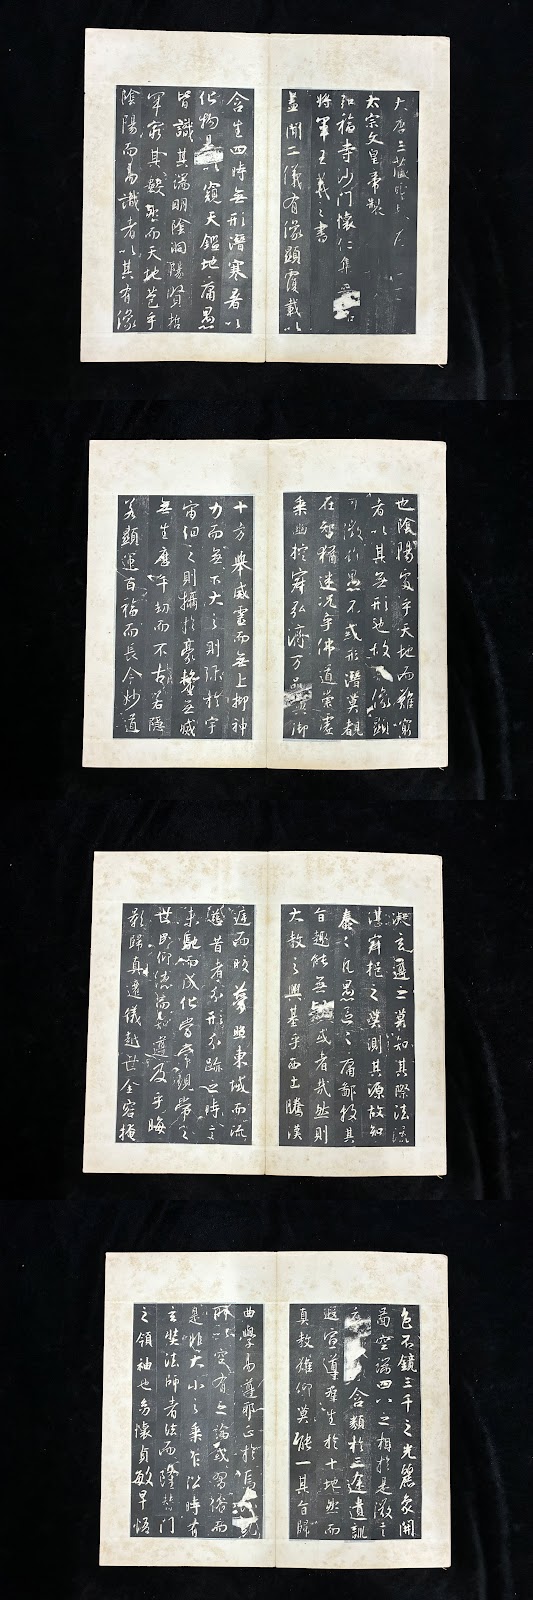 大唐三藏聖教序
太宗文皇帝製
弘福寺沙門懷仁集
將軍王羲之書
蓋聞二儀有像顯覆載以
含生四時無形潛寒暑以
化物是以窺天鑑地庸愚
皆識其端明陰洞陽賢哲
罕窮其數然而天地苞乎
陰陽而易識者以其有像
也陰陽處乎天地而難窮
者以其無形也故像顯
可徵雖愚不惑形潛莫覩
在智猶迷況乎佛道崇虛
乘幽控寂弘濟萬品御
十方舉威靈而無上抑神
力而無下大之則彌於宇
宙細之則攝於豪釐無滅
無生歷千劫而不古若隱
若顯運百福而長今妙道
凝玄遵之莫知其際法流
湛寂挹之莫測其源故知
蠢蠢凡愚區區庸鄙投其
旨趣能無疑惑者哉然則
大教之興基乎西土騰漢
庭而皎夢照東域而流
慈昔者分形分跡之時言
未馳而成化當常現常之
世民仰德而知遵及乎晦
影歸真遷儀越世金容掩
色不鏡三千之光麗象開
圖空端四八之相於是微言
含類於三途遺訓
遐宣導群生於十地然而
真教難仰莫能一其旨歸
曲學易遵邪正於焉糺
所以空有之論或習俗而
是非大小之乘乍沿時有
玄奘法師者法而隆替門
之領袖也幼懷貞敏早悟